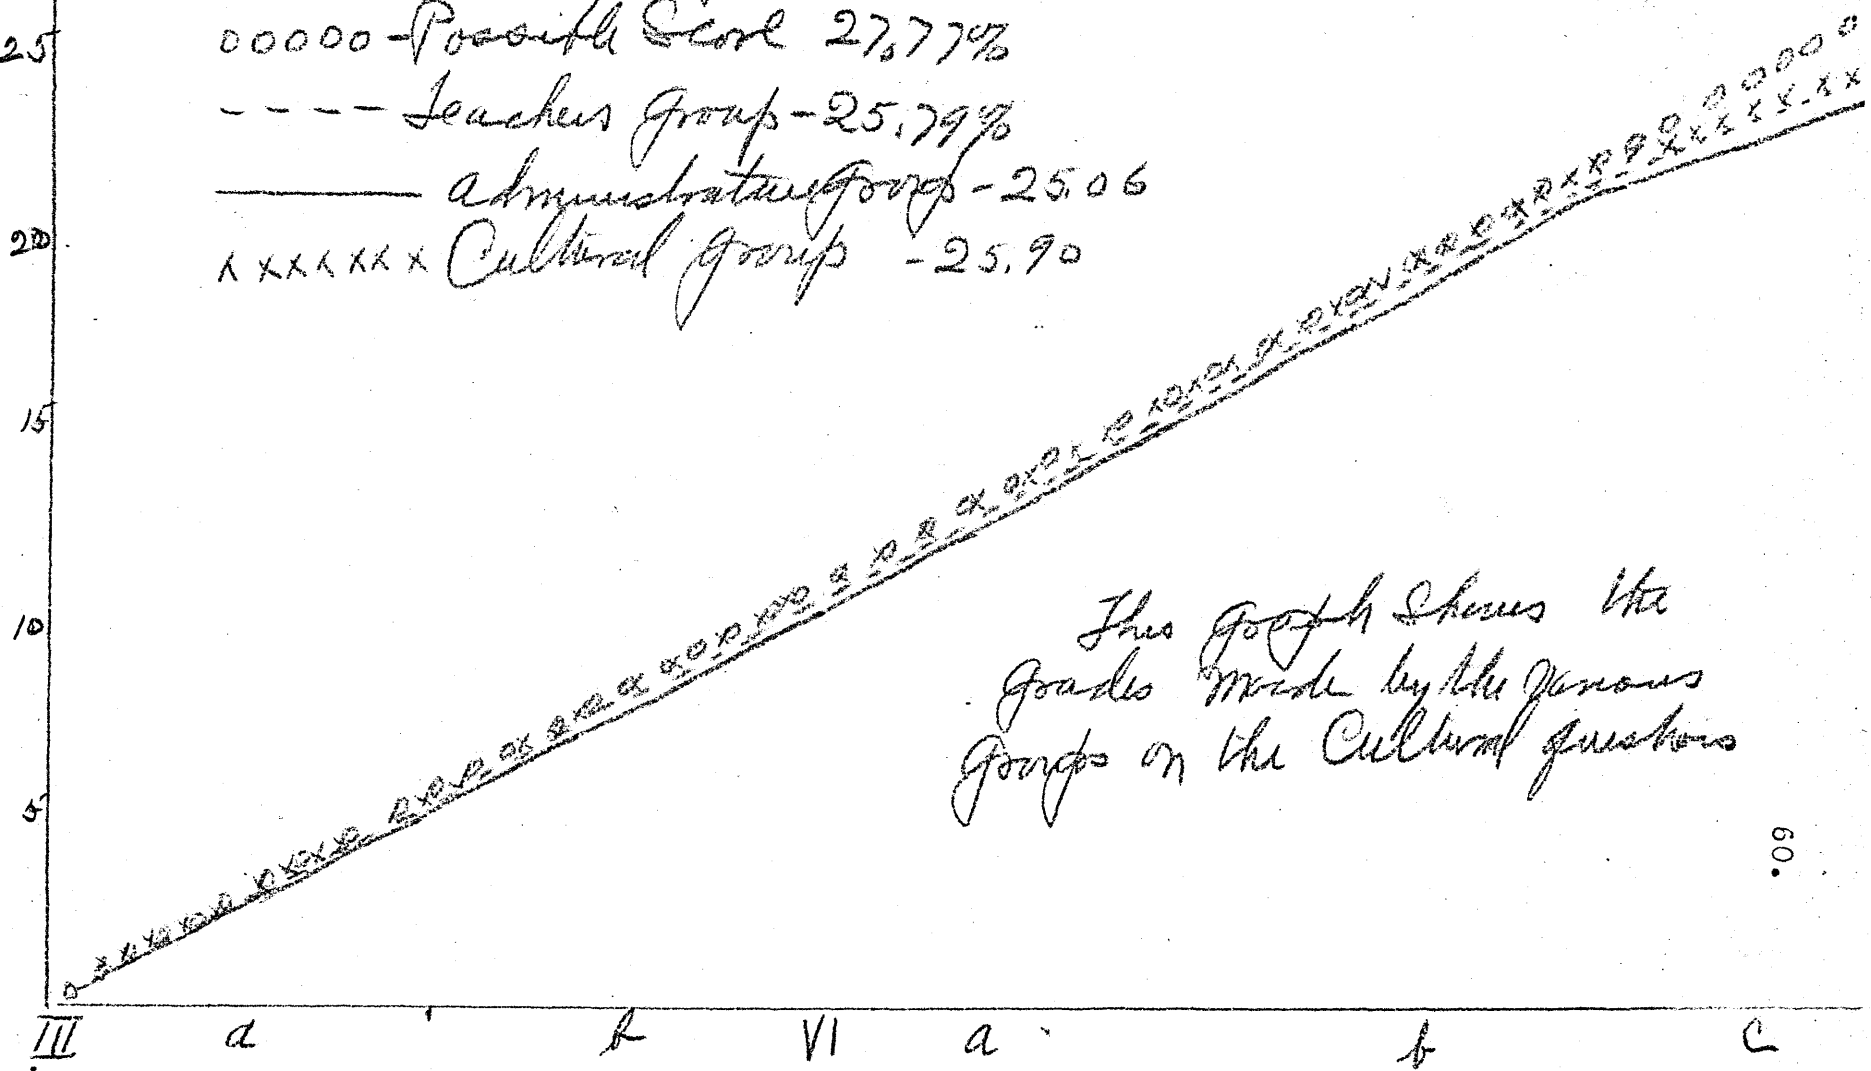 25
ooooo - Possible Score 27.77%
---- Teachers Group - 25.79%
Administrative Group - 25.06
20
x xxx xx x Cultural Group - 25.90
15
10
This graph shows the
grades made by the various
groups on the Cultural questions
5
60.
III a b VI a b c